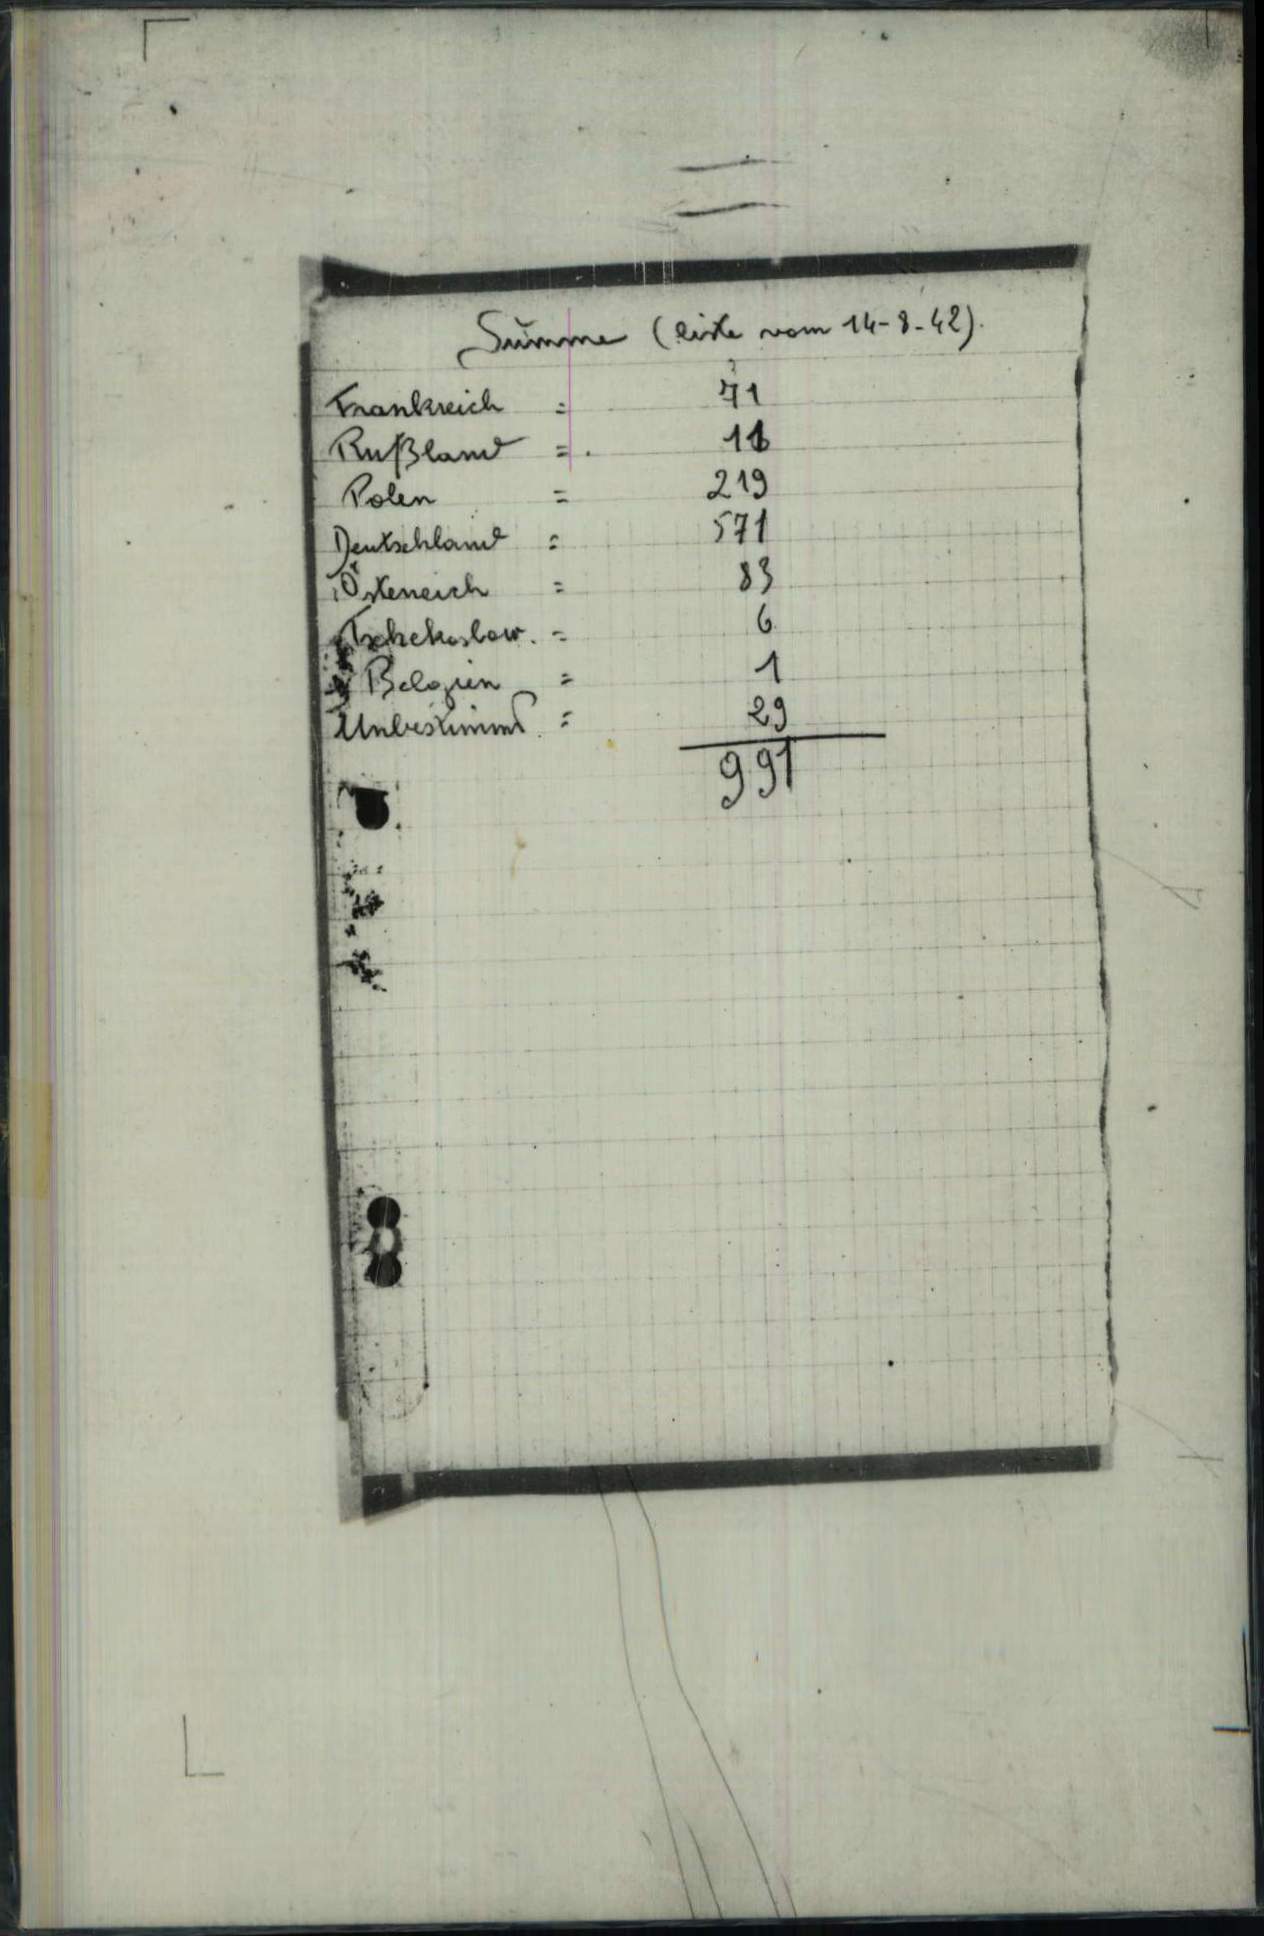 Summe (Liste vom 14-8-42).
Frankreich = 71
Rußland = 11
Polen = 219
Deutschland = 571
Österreich = 83
Tschekoslow. = 6
Belgien = 1
Unbestimmt = 29
991